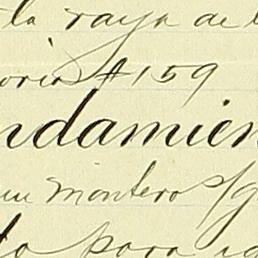 la raya de l
oria #159
ndamien
un Montero s/g
to para ig